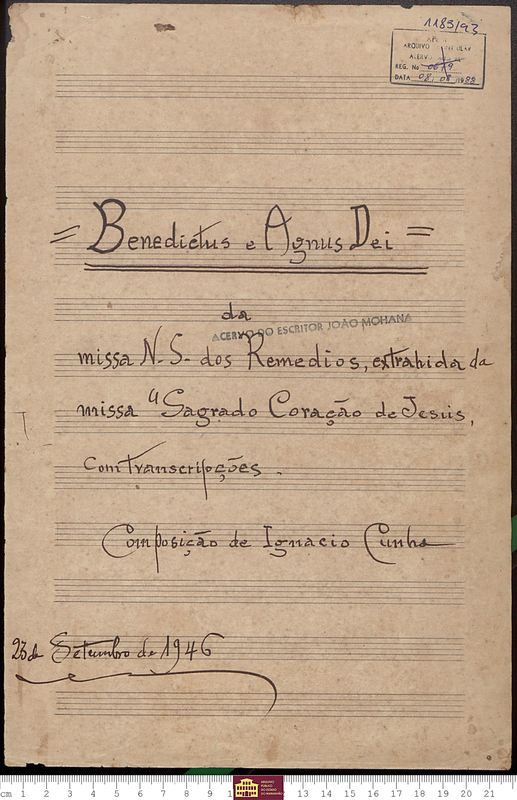 1183/93
ARQUIVO
ACERVO
REG. No 0679
DATA 08, 08
= Benedictus e Agnus Dei =
da
ACERVO DO ESCRITOR JOÃO MOHANA
missa N. S. dos Remedios, extrahida da
missa "Sagrado Coração de Jesus,
com transcripções.
Composição de Ignacio Cunha
23 de Setembro de 1946
cm 1 2 3 4 5 6 7 8 9 13 14 15 16 17 18 19 20 21
ARQUIVO
PÚBLICO
DO ESTADO
DO MARANHÃO